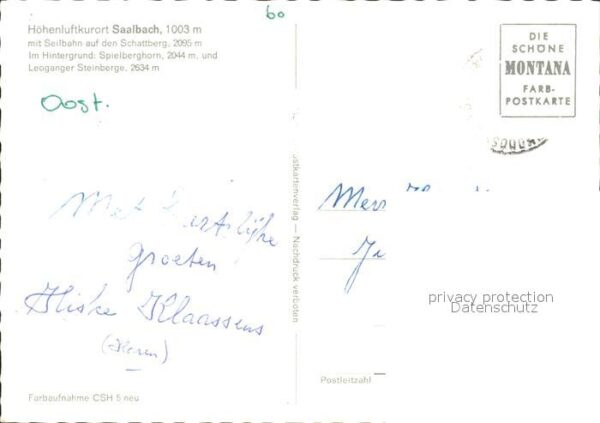 60
Höhenluftkurort Saalbach, 1003 m
mit Seilbahn auf den Schattberg, 2095 m
Im Hintergrund: Spielberghorn, 2044 m, und
Leoganger Steinberge, 2634 m
Oost.
DIE
SCHÖNE
MONTANA
FARB-
POSTKARTE
Met Hartelijke
groeten
Hiske Klaassens
ostkartenverlag — Nachdruck verboten
privacy protection
Datenschutz
Postleitzahl
Farbaufnahme CSH 5 neu